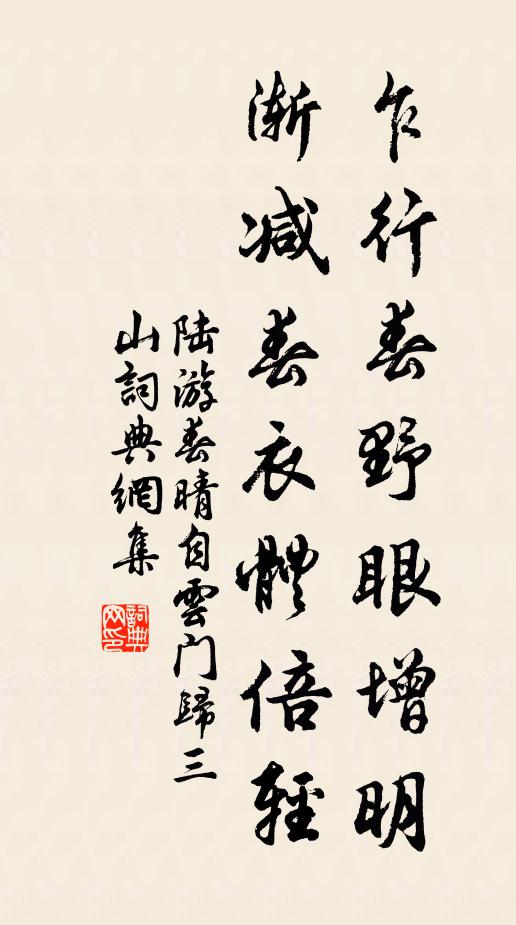 乍行春野眼增明
渐减春衣體倍輕
陆游春晴自雲门歸三
山詞典網集
詞典
网印